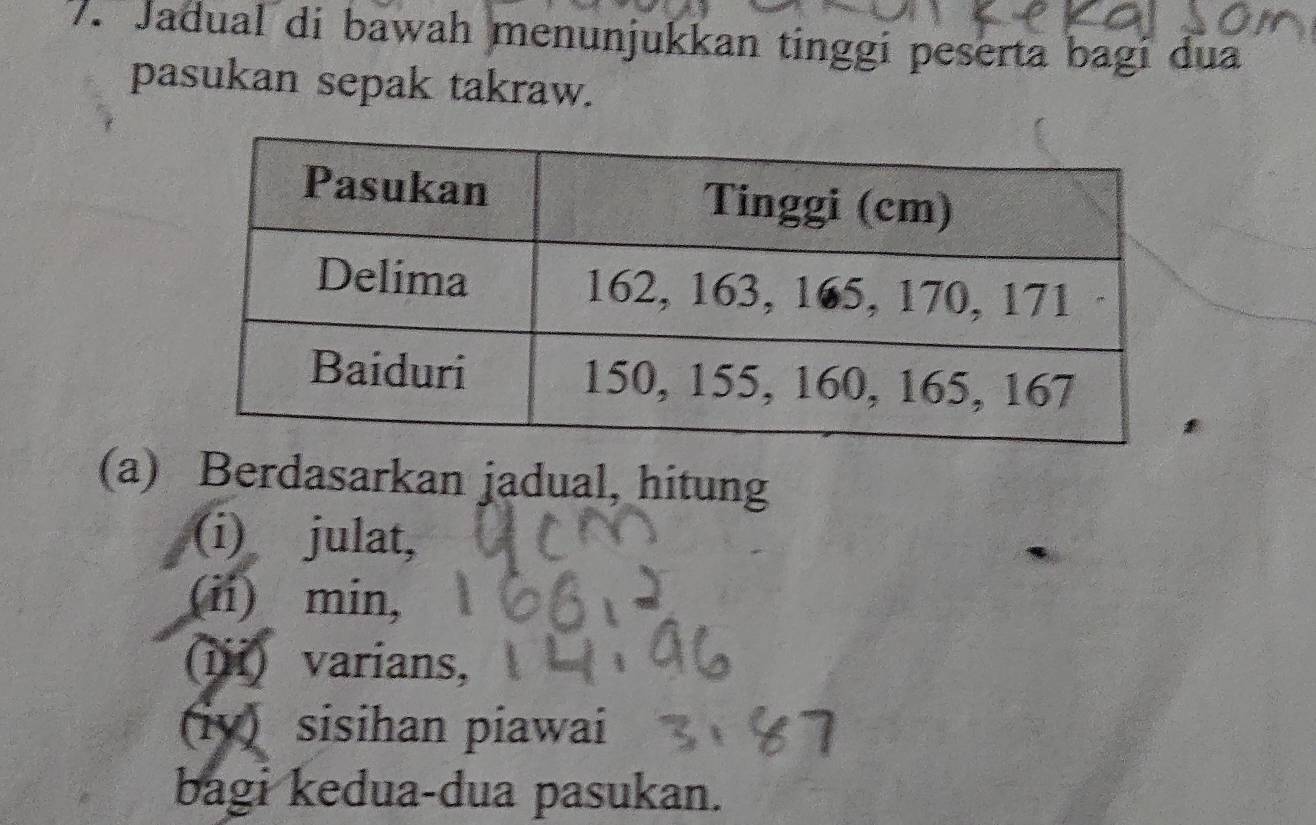 kekal som
7. Jadual di bawah menunjukkan tinggi peserta bagi dua
pasukan sepak takraw.
Pasukan Tinggi (cm)
Delima 162, 163, 165, 170, 171
Baiduri 150, 155, 160, 165, 167
(a) Berdasarkan jadual, hitung
(i) julat, 9cm
(ii) min, 166,2
(iii) varians, 14.96
(iv) sisihan piawai 3.87
bagi kedua-dua pasukan.